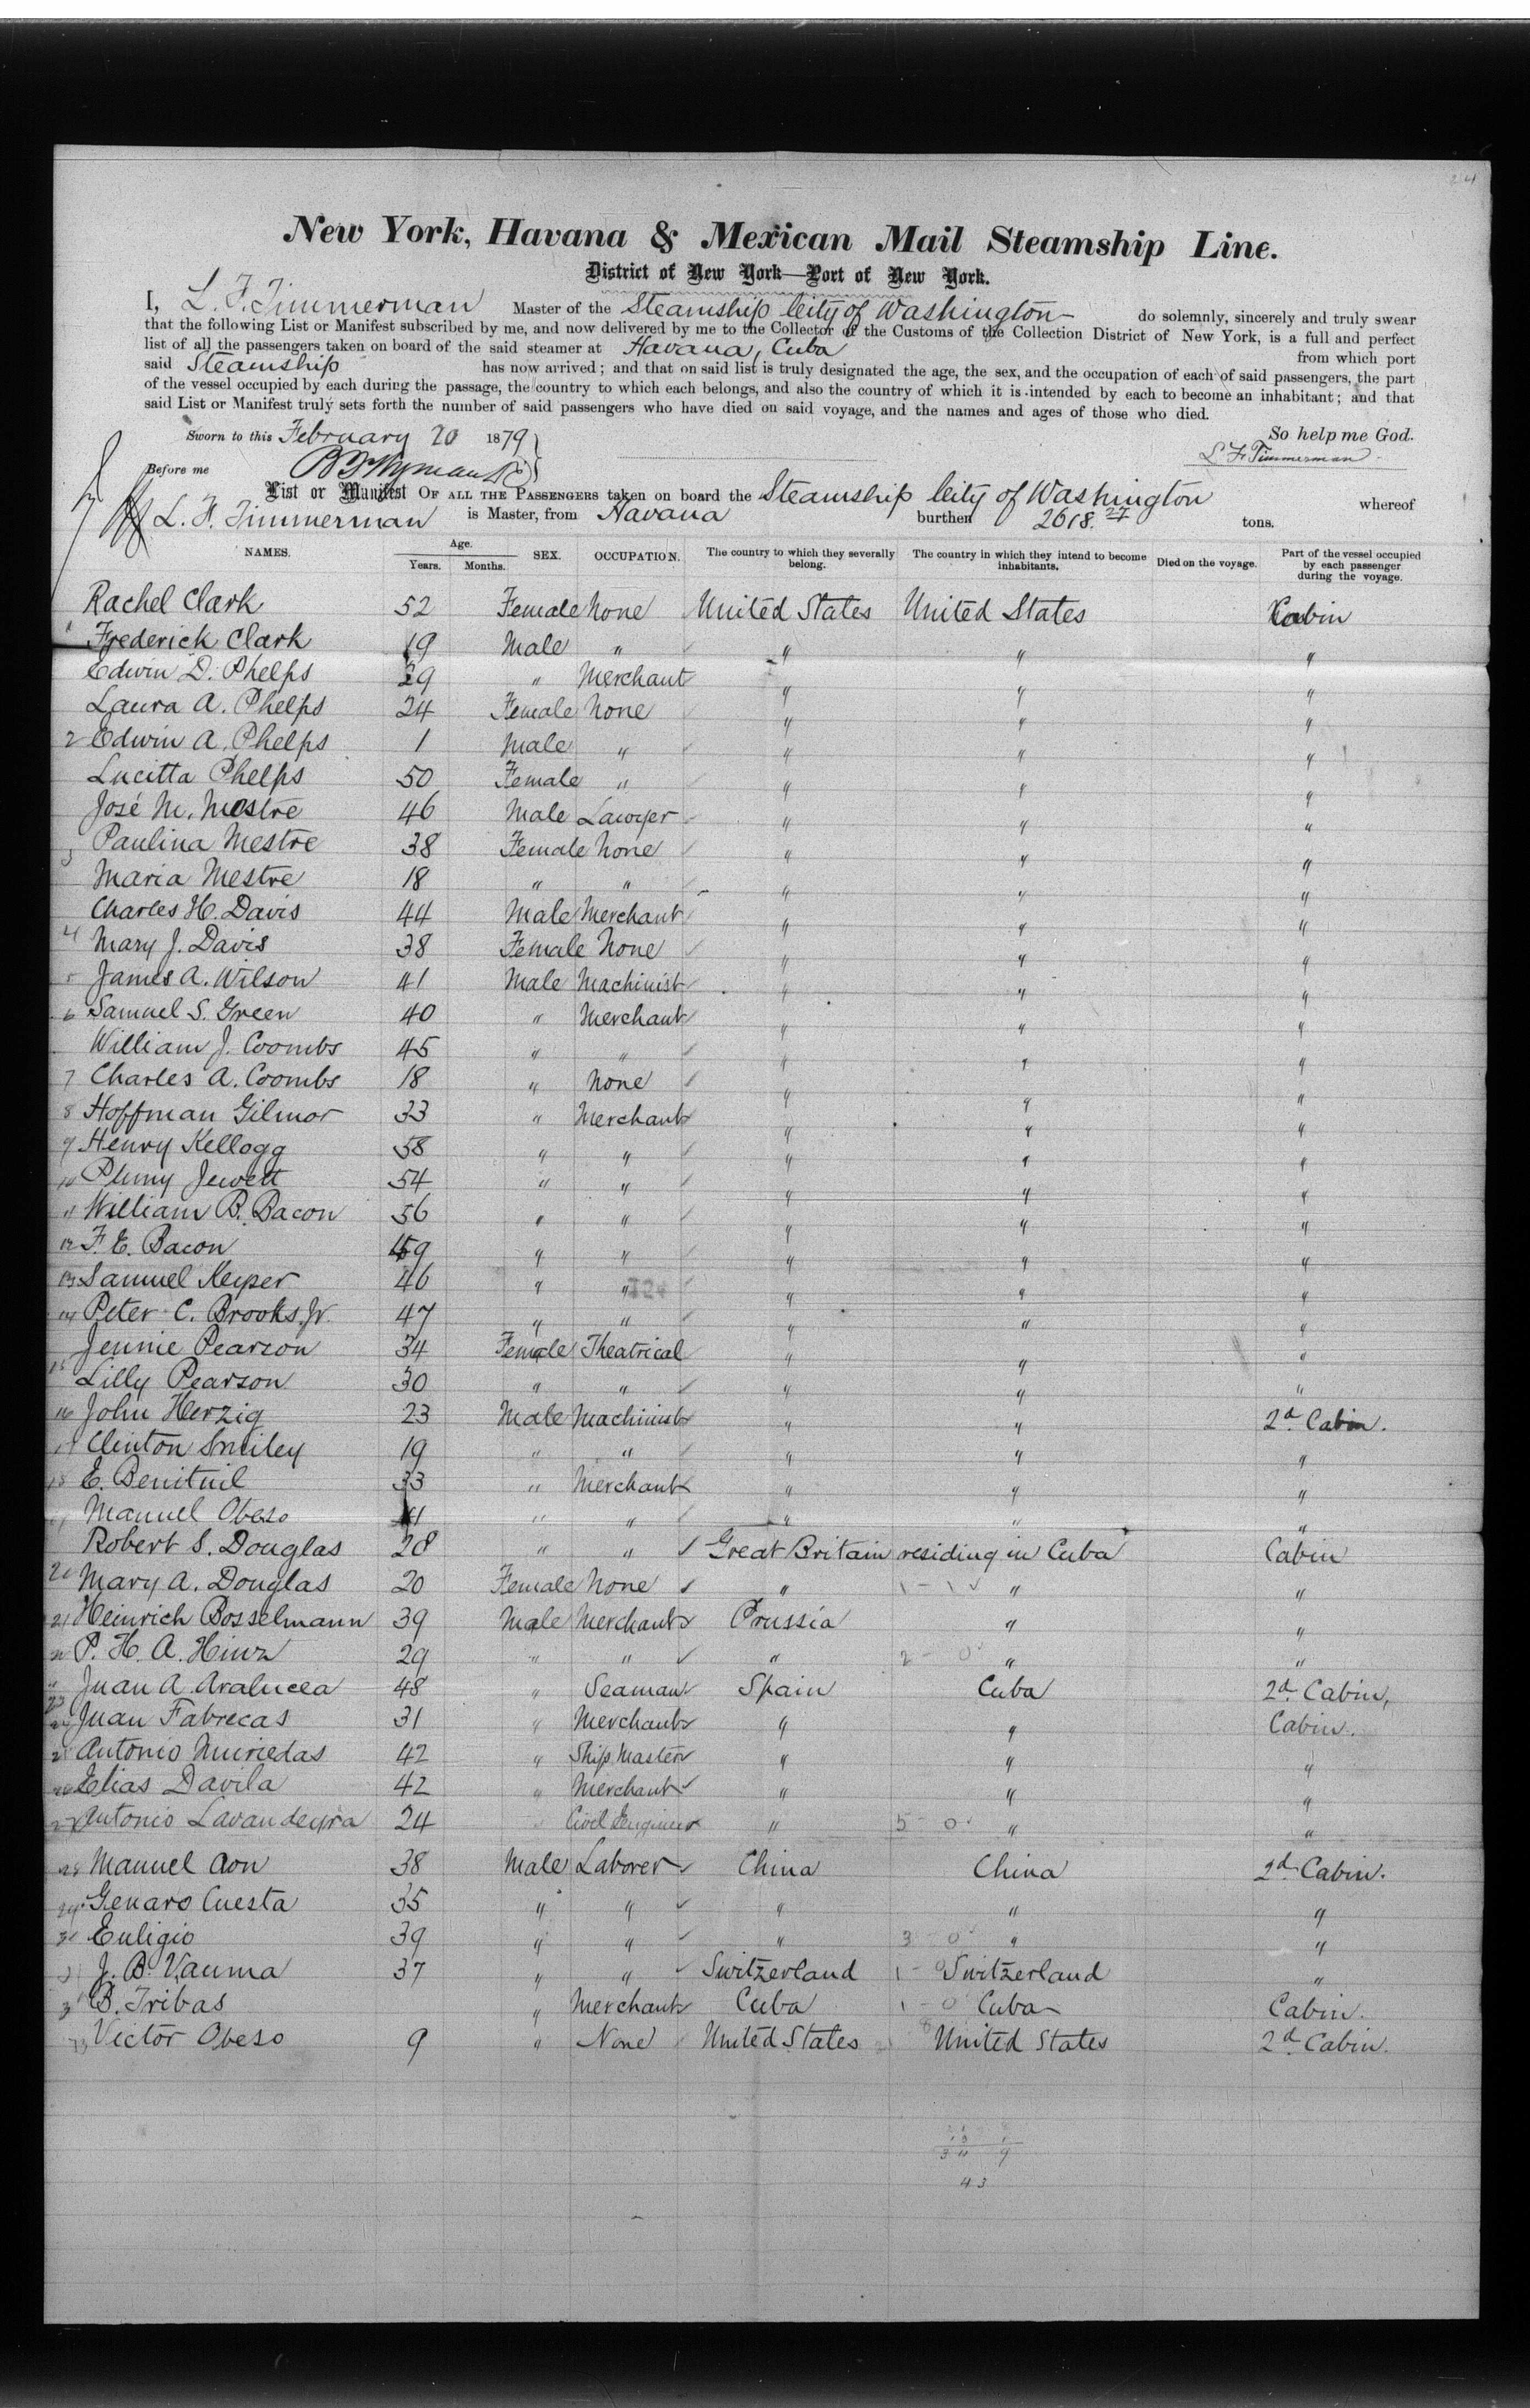 New York, Havana & Mexican Mail Steamship Line.
District of New York—Port of New York.
I, L. F. Timmerman Master of the Steamship City of Washington do solemnly, sincerely and truly swear
that the following List or Manifest subscribed by me, and now delivered by me to the Collector of the Customs of the Collection District of New York, is a full and perfect
list of all the passengers taken on board of the said steamer at Havana, Cuba from which port
said Steamship has now arrived; and that on said list is truly designated the age, the sex, and the occupation of each of said passengers, the part
of the vessel occupied by each during the passage, the country to which each belongs, and also the country of which it is intended by each to become an inhabitant; and that
said List or Manifest truly sets forth the number of said passengers who have died on said voyage, and the names and ages of those who died.
Sworn to this February 20 1879 So help me God.
L F Timmerman
Before me
List or Manifest OF ALL THE PASSENGERS taken on board the Steamship City of Washington whereof
L. F. Timmerman is Master, from Havana burthen 2618.27 tons.
NAMES. Age. Years. Months. SEX. OCCUPATION. The country to which they severally belong. The country in which they intend to become inhabitants. Died on the voyage. Part of the vessel occupied by each passenger during the voyage.
Rachel Clark 52 Female None United States United States Cabin
1 Frederick Clark 19 Male " " " "
Edwin D. Phelps 29 " Merchant " " "
Laura A. Phelps 24 Female None " " "
2 Edwin A. Phelps 1 Male " " " "
Lucitta Phelps 50 Female " " " "
José M. Mestre 46 Male Lawyer " " "
3 Paulina Mestre 38 Female None " " "
Maria Mestre 18 " " " " "
Charles H. Davis 44 Male Merchant " " "
4 Mary J. Davis 38 Female None " " "
5 James A. Wilson 41 Male Machinist " " "
6 Samuel S. Green 40 " Merchant " " "
William J. Coombs 45 " " " " "
7 Charles A. Coombs 18 " None " " "
8 Hoffman Gilmor 33 " Merchant " " "
9 Henry Kellogg 58 " " " " "
10 Pluny Jewett 54 " " " " "
11 William B. Bacon 56 " " " " "
12 F. E. Bacon 59 " " " " "
13 Samuel Keyser 46 " " " " "
14 Peter C. Brooks, Jr. 47 " " " " "
Jennie Pearson 34 Female Theatrical " " "
15 Lilly Pearson 30 " " " " "
16 John Herzig 23 Male Machinist " " 2d Cabin.
17 Clinton Smiley 19 " " " " "
18 E. Benituil 33 " Merchant " " "
19 Manuel Obeso 41 " " " " "
Robert S. Douglas 28 " " Great Britain residing in Cuba Cabin
20 Mary A. Douglas 20 Female None " 1 - 1 " "
21 Heinrich Bosselmann 39 Male Merchant Prussia " "
22 P. H. A. Hinz 29 " " " 2 - 0 " "
23 Juan A. Aralucea 48 " Seaman Spain Cuba 2d Cabin,
24 Juan Fabrecas 31 " Merchant " " Cabin.
25 Antonio Muriedas 42 " Ship Master " " "
26 Elias Davila 42 " Merchant " " "
27 Antonio Lavandeyra 24 " Civil Engineer " 5 - 0 " "
28 Manuel Aon 38 Male Laborer China China 2d Cabin.
29 Genaro Cuesta 35 " " " " "
30 Euligio 39 " " " 3 - 0 " "
31 J. B. Vauma 37 " " Switzerland 1 - 0 Switzerland "
32 B. Tribas " Merchant Cuba 1 - 0 Cuba Cabin.
33 Victor Obeso 9 " None United States United States 2d Cabin.
34 9
43